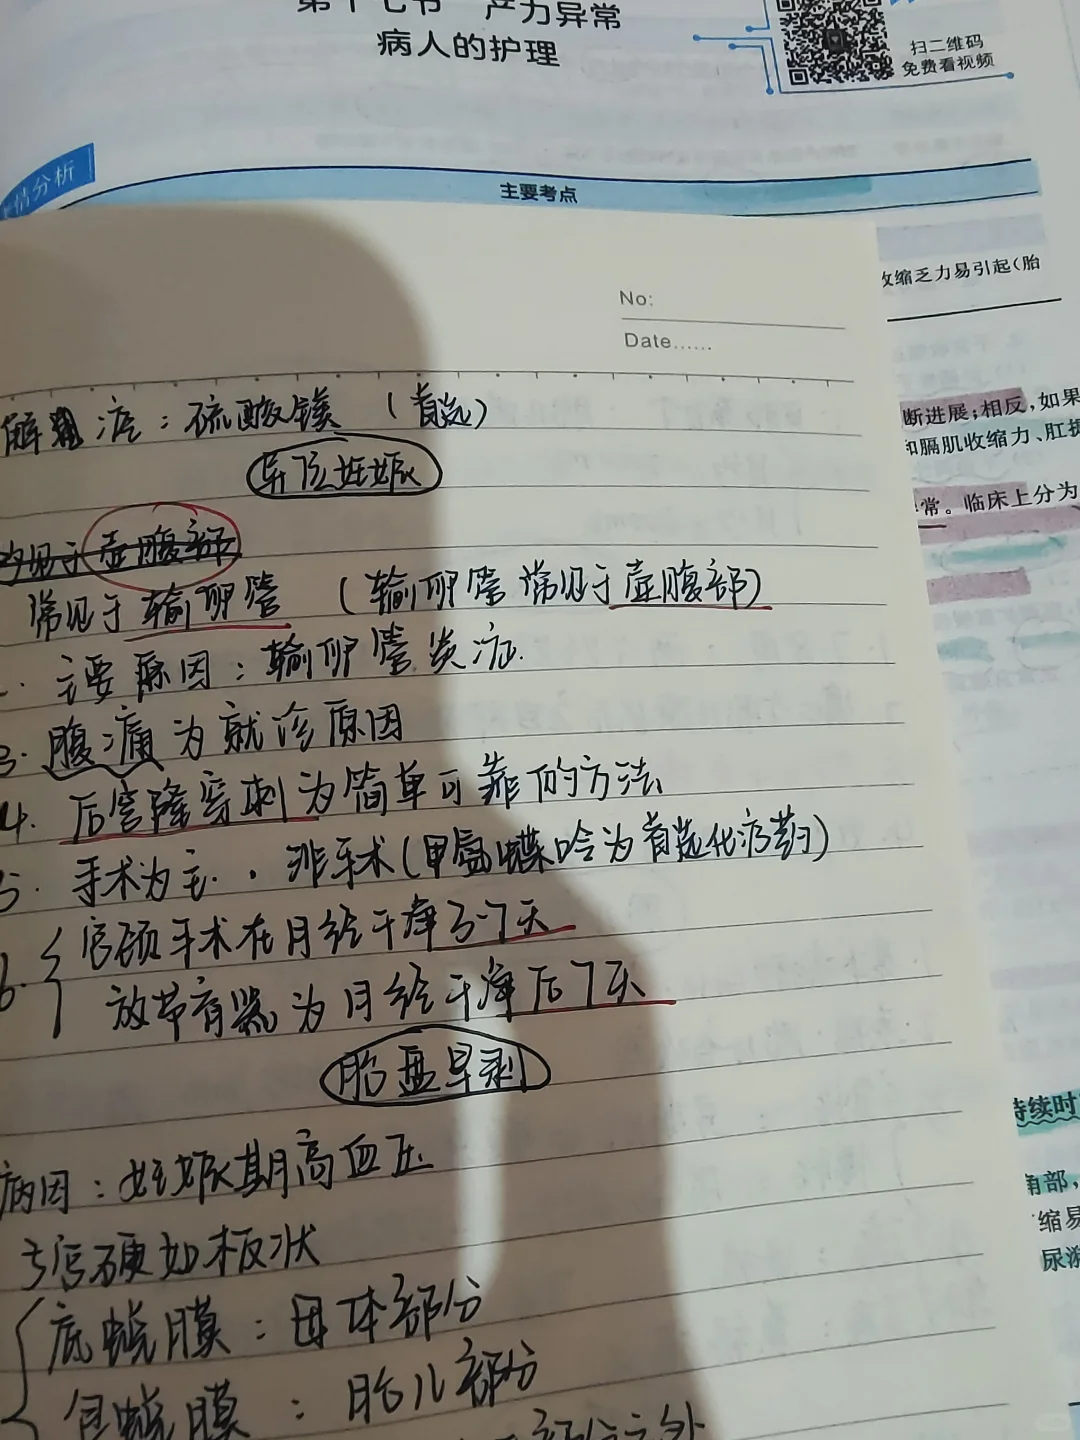 第十七节 产力异常
病人的护理
扫二维码
免费看视频
情分析
主要考点
收缩乏力易引起(胎
No:
Date......
断进展;相反,如果
和膈肌收缩力、肛提
常。临床上分为
解痉:硫酸镁 (首选)
异位妊娠
均见于壶腹部
常见于输卵管 (输卵管常见于壶腹部)
主要原因:输卵管炎症.
3. 腹痛为就诊原因
4. 后穹隆穿刺为简单可靠的方法
5. 手术为主. 非手术(甲氨蝶呤为首选化疗药)
6. 宫颈手术在月经干净3-7天
放节育器为月经干净后7天
胎盘早剥
病因:妊娠期高血压
子宫硬如板状
底蜕膜:母体部分
包蜕膜:胎儿部分
部分之外
持续时
角部,
缩易
尿潴